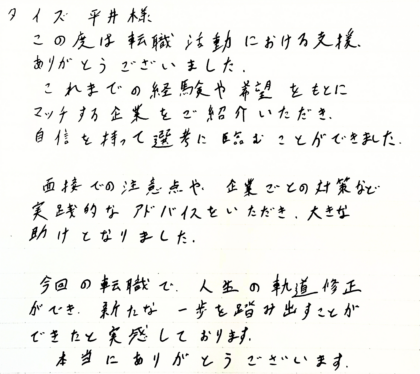 タイズ 平井様
この度は転職活動における支援、
ありがとうございました。
これまでの経験や希望をもとに
マッチする企業をご紹介いただき、
自信を持って選考に臨むことができました。
面接での注意点や、企業ごとの対策など
実践的なアドバイスをいただき、大きな
助けとなりました。
今回の転職で、人生の軌道修正
ができ、新たな一歩を踏み出すことが
できたと実感しております。
本当にありがとうございます。